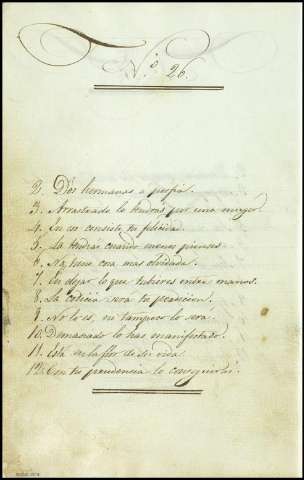 N.º 26.
2. Dos hermanas a porfia.
3. Arrastrado lo tendras por una muger.
4. En eso consiste tu felicidad.
5. La tendras cuando menos pienses.
6. No, tiene otra mas olvidada.
7. En dejar lo que tubieres entre manos.
8. La codicia sera tu perdicion.
9. No lo es, ni tampoco lo sera.
10. Demasiado lo has manifestado.
11. Está en la flor de su vida.
12. Con tu prudencia lo conseguirás.